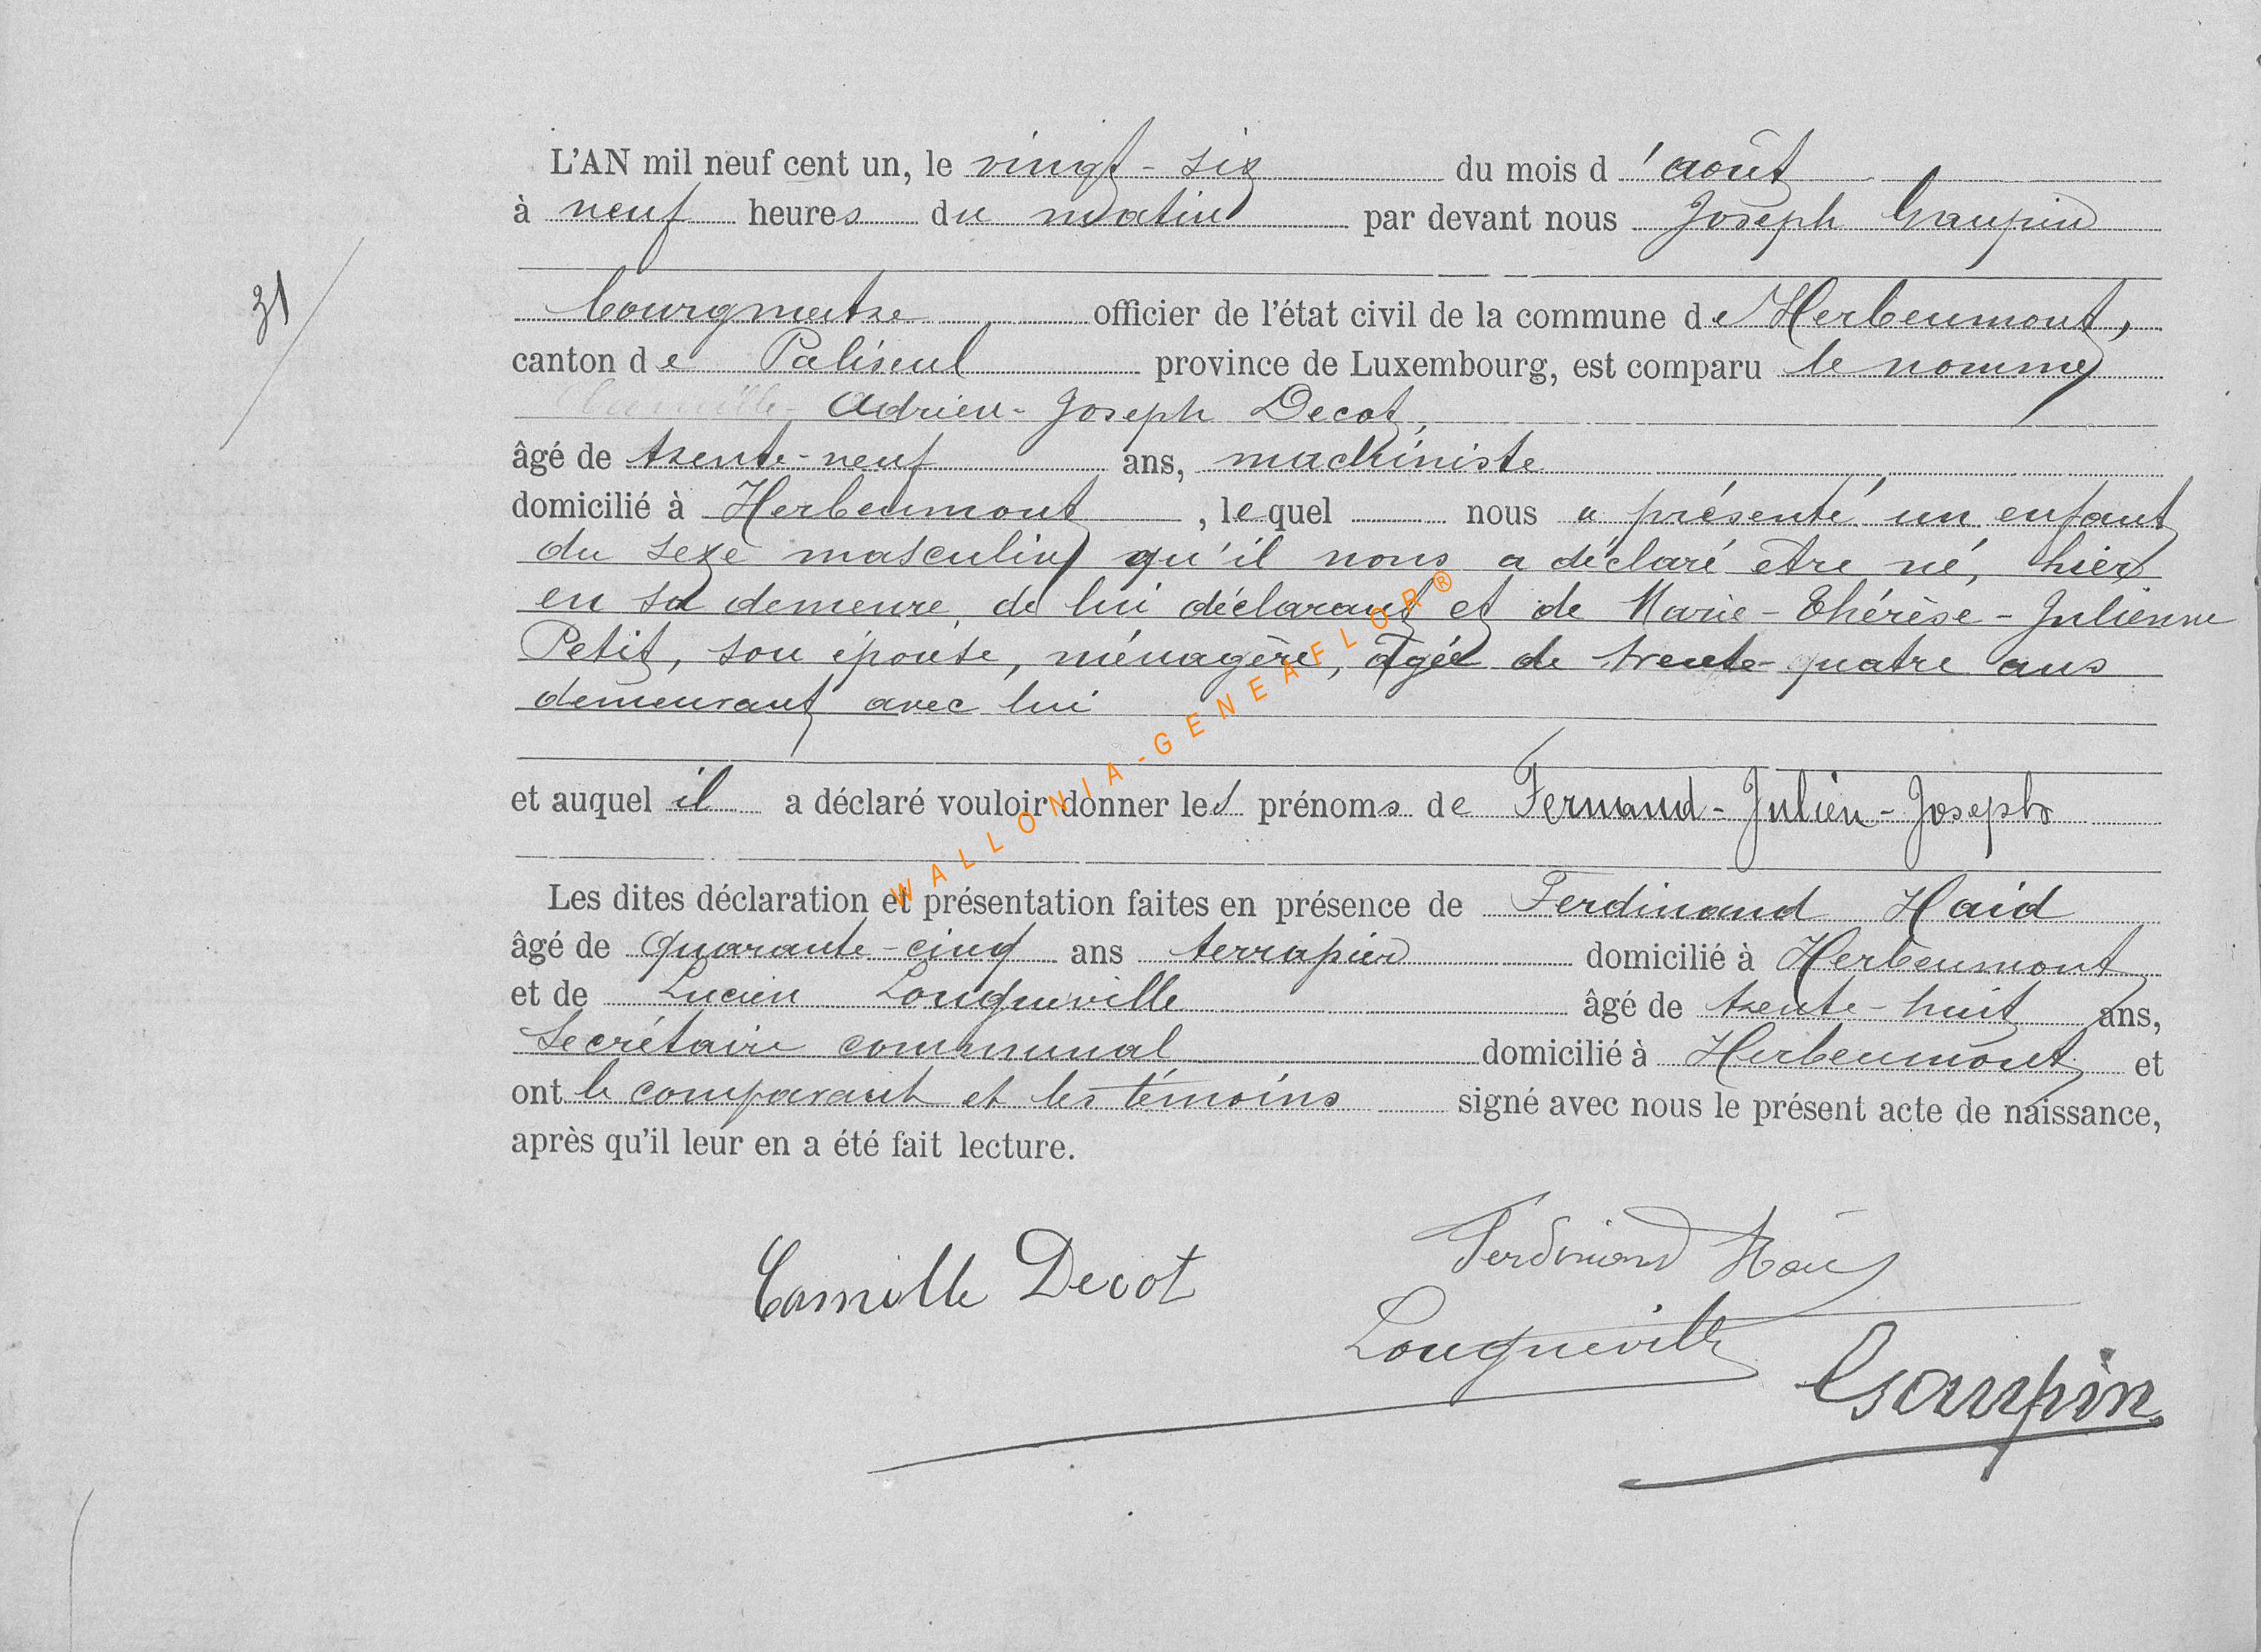 31
L'AN mil neuf cent un, le vingt-six du mois d'août
à neuf heures du matin par devant nous Joseph Gaupin
bourgmestre officier de l'état civil de la commune de Herbeumont,
canton de Paliseul province de Luxembourg, est comparu le nommé
Camille Adrien-Joseph Decot,
âgé de trente-neuf ans, machiniste
domicilié à Herbeumont, lequel nous a présenté un enfant
du sexe masculin qu'il nous a déclaré être né, hier
en sa demeure, de lui déclarant et de Marie-Thérèse-Julienne
Petit, son épouse, ménagère, âgée de trente-quatre ans
demeurant avec lui
et auquel il a déclaré vouloir donner les prénoms de Fernand-Julien-Joseph
Les dites déclaration et présentation faites en présence de Ferdinand Haid
âgé de quarante-cinq ans domicilié à Herbeumont
et de Lucien Longueville âgé de trente-huit ans,
Secrétaire communal domicilié à Herbeumont et
ont le comparant et les témoins signé avec nous le présent acte de naissance,
après qu'il leur en a été fait lecture.
Camille Decot
Ferdinand
Longueville
Gaupin
WALLONIA-GENEAFLOR®